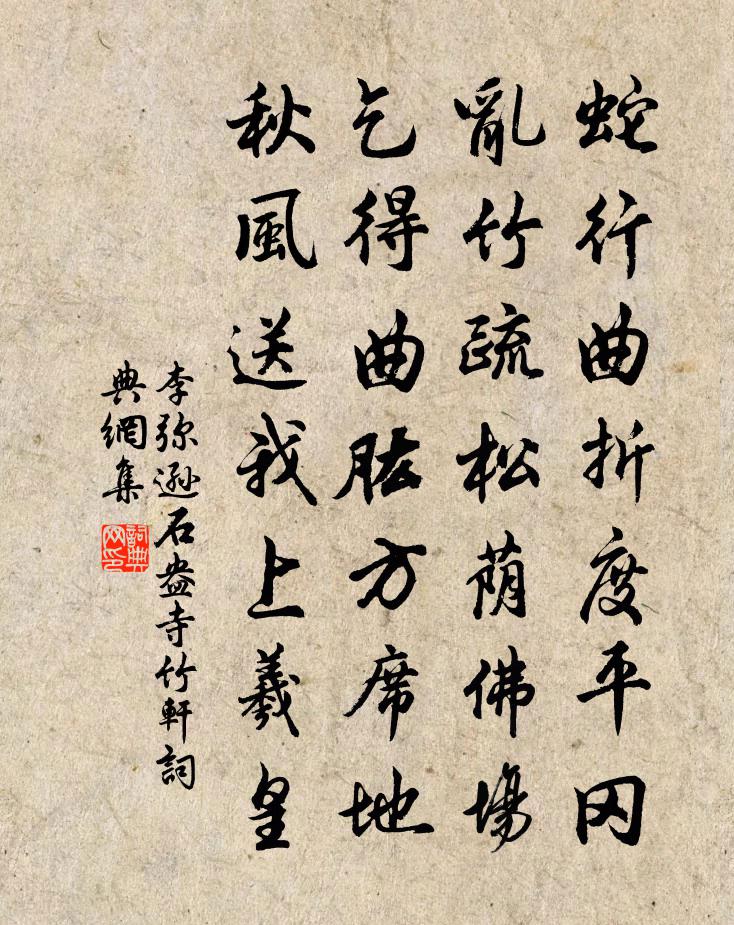 蛇行曲折度平冈
亂竹疏松荫佛場
乞得曲肱方席地
秋風送我上羲皇
李弥遜石盎寺竹軒詞
典網集
詞典网印